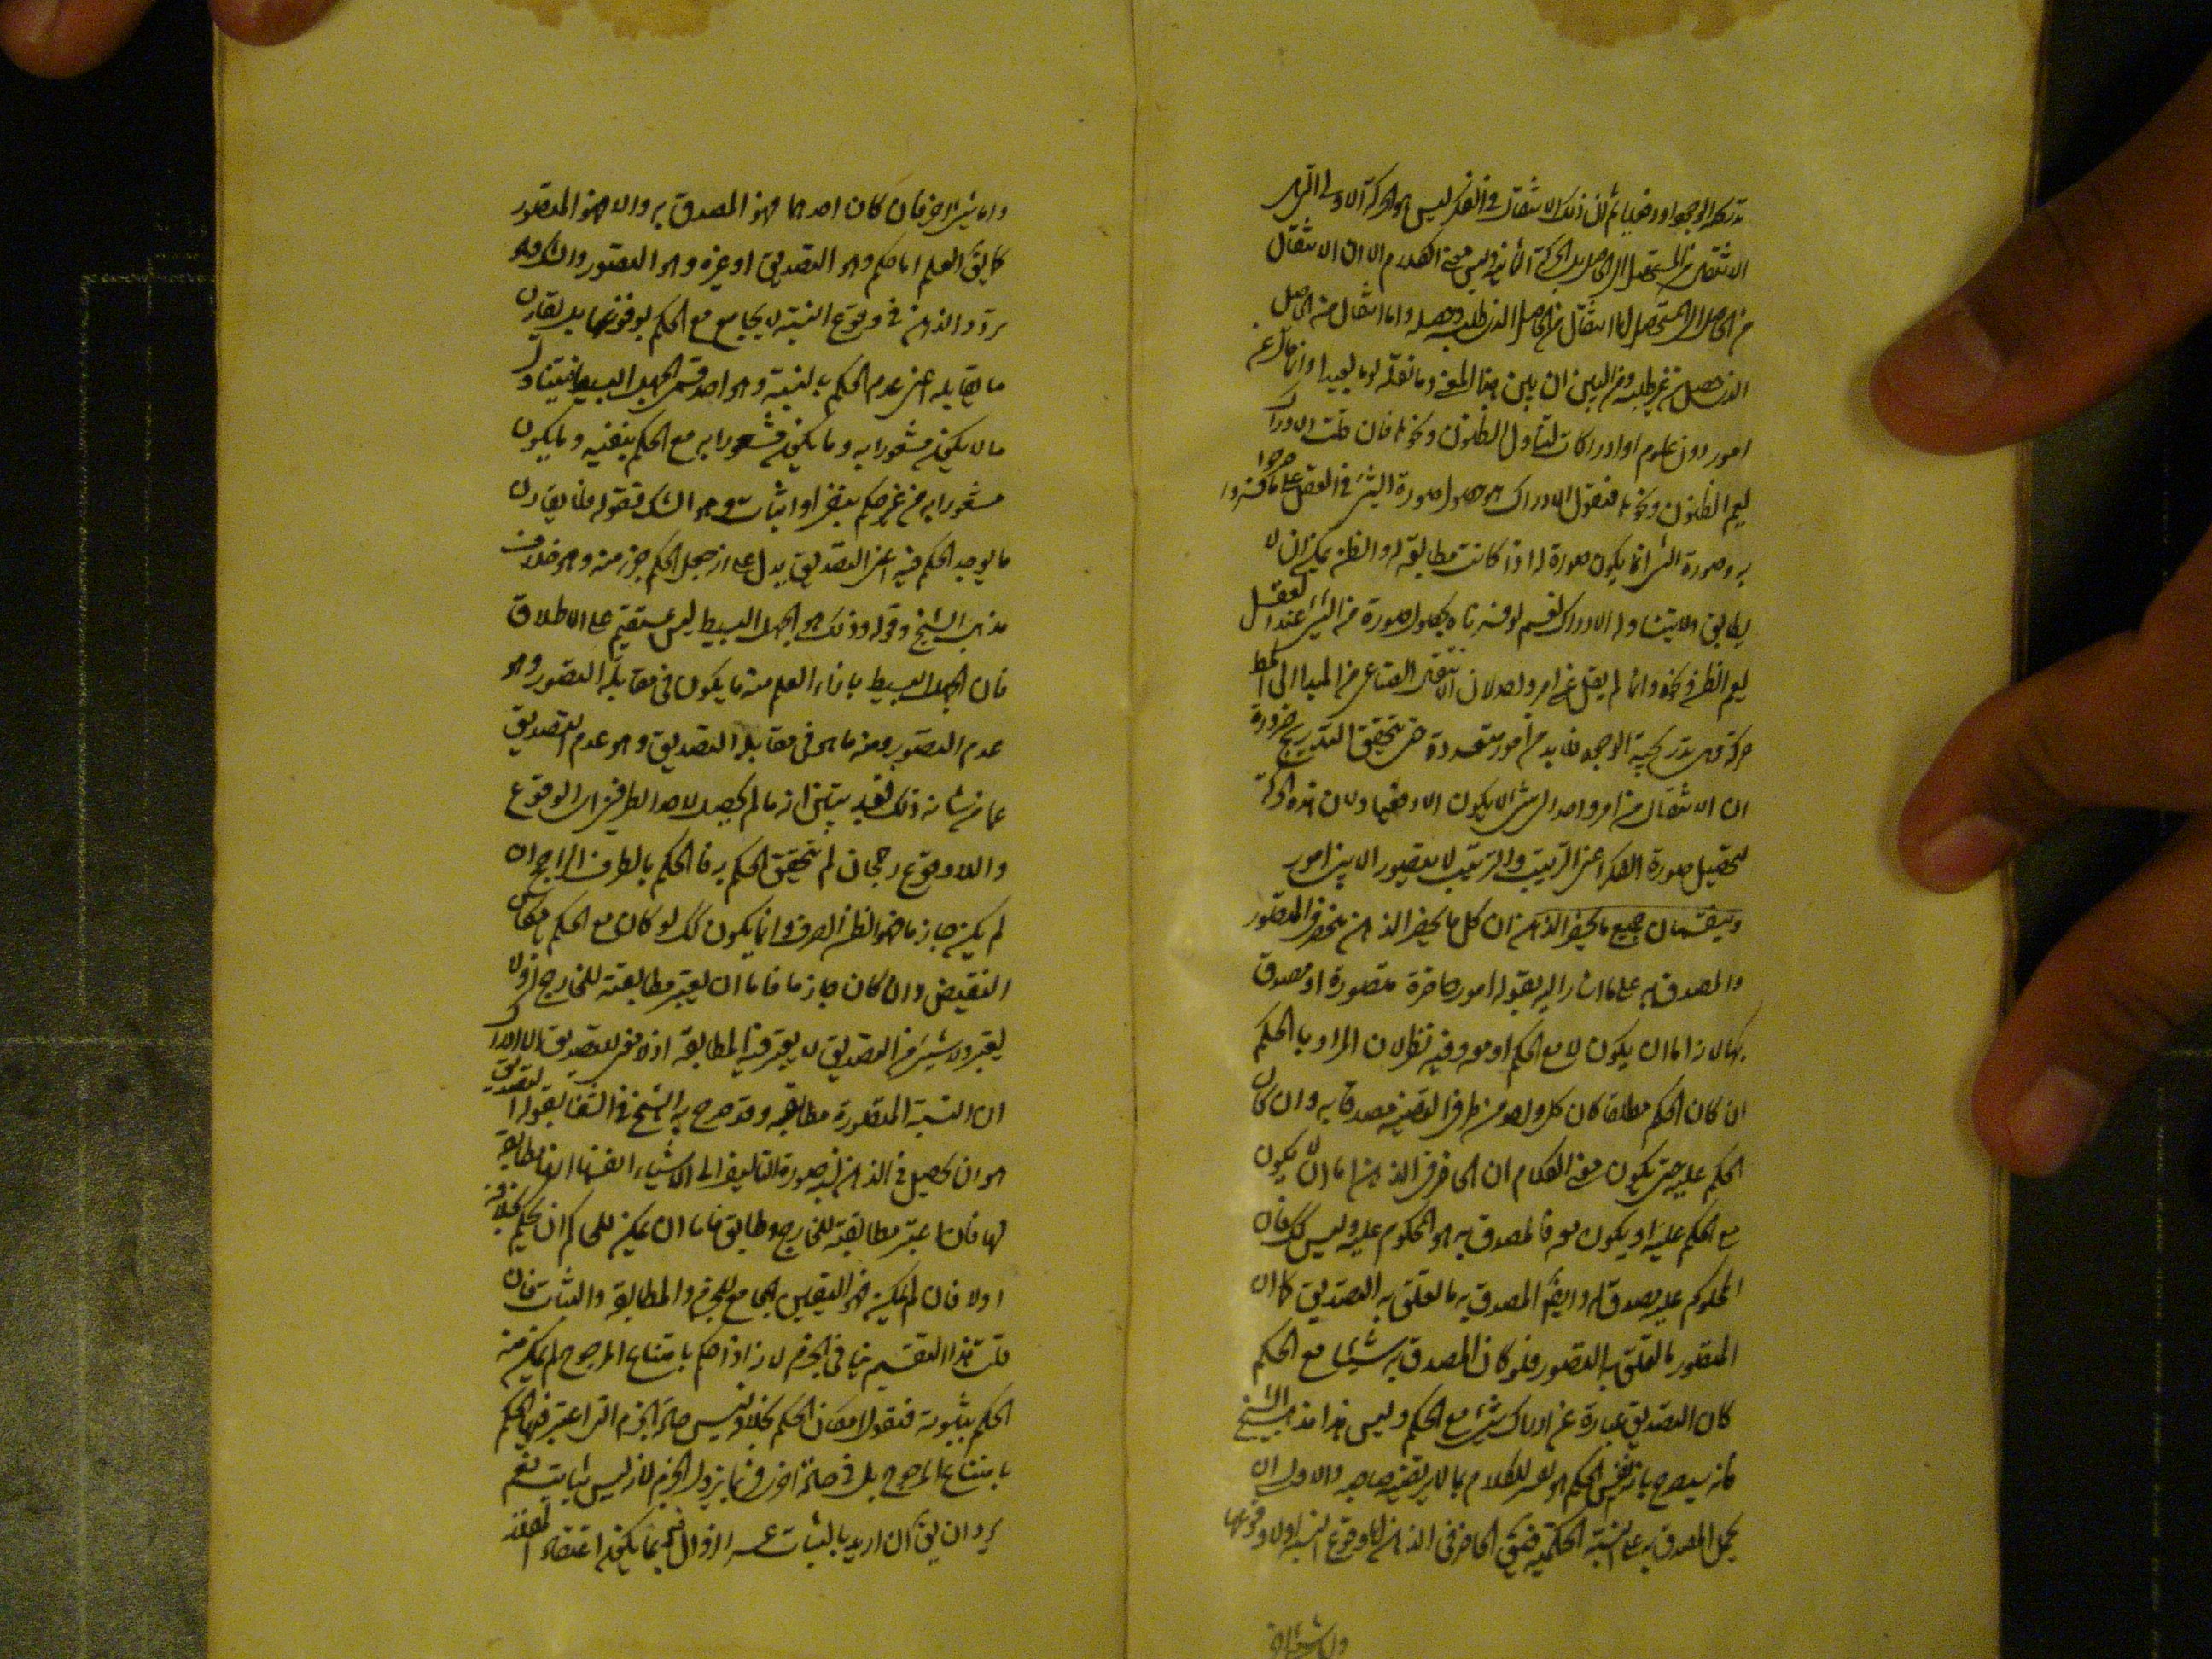 تدريجية الوجود او دفعيا ثم ان ذلك الانتقال في الفكر ليس هو الحركة الاولى التي هي
الانتقال من المستحصل الى الحاصل بل الحركة الثانية وليس معنى الكلام الا ان الانتقال
من الحاصل الى المستحصل اما انتقال من الحاصل الذي طلبه وحصله واما انتقال من الحاصل
الذي حصل من غير طلبه ومن البين ان بين هذا المعنى وما نقله بعيدا وانما قال عن
امور دون علوم او ادراكات ليتناول الظنون ونحوها فان قلت الادراك
يعم الظنون ونحوها فنقول الادراك هو حصول صورة الشئ في العقل على ما صرحوا
به وصورة الشئ انما يكون صورة له اذا كانت مطابقة له والظن يمكن ان لا
يطابق ولا يتناوله الادراك نعم لو فسرناه بحصول صورة من الشئ عند العقل
يعم الظن ونحوه وانما لم يقل عن امر واحد لان الانتقال الصناعي من المبدا الى المط
حركة هي تدريجية الوجود فلا بد من امور متعددة حتى يتحقق التدريج ضرورة
ان الانتقال من امر واحد الى شئ لا يكون الا دفعيا ولان هذه الحركة
لتحصيل صورة الفكر اعني الترتيب والترتيب لا يتصور الا بين امور
وينقسمان جميع ما يحضر الذهن ان كل ما يحضر الذهن منحصر في المتصور
والمصدق به على ما اشار اليه بقوله امور حاضرة متصورة او مصدق
بها لانه اما ان يكون لا مع الحكم او معه وفيه نظر لان المراد بالحكم
ان كان الحكم مطلقا كان كل واحد من طرفي القضية مصدقا به وان كان
الحكم عليه حتى يكون معنى الكلام ان الحاضر في الذهن اما ان لا يكون
مع الحكم عليه او يكون معه فالمصدق به هو المحكوم عليه وليس كك فان
المحكوم عليه مصدق له وايضا المصدق به ما تعلق به التصديق كما ان
المتصور ما تعلق به التصور فلو كان المصدق به شيئا مع الحكم
كان التصديق عبارة عن ادراك شئ مع الحكم وليس هذا مذهب الشيخ
فانه سيصرح بانه نفس الحكم فهو تفسير للكلام بما لا يرتضيه صاحبه والاولى ان
يحمل المصدق به على النسبة الحكمية فنقول الحاضر في الذهن اما وقوع النسبة او لا وقوعها
واما شئ اخر
واما شئ اخر فان كان احدهما فهو المصدق به والا فهو المتصور
كما يق العلم اما حكم وهو التصديق او غيره وهو التصور والشك وهو
تردد الذهن في وقوع النسبة لا يجامع مع الحكم بوقوعها بل يقارن
ما يقابله اعني عدم الحكم بالنسبة وهو احد قسمي الجهل البسيط فيتناول
ما لا يكون مشعورا به وما يكون مشعورا به مع الحكم بنفيه وما يكون
مشعورا به من غير حكم بنفي او اثبات وهو الشك فقوله فلا يقارن
ما يوجد الحكم فيه اعني التصديق يدل على انه جعل الحكم جزء منه وهو خلاف
مذهب الشيخ وقوله وذلك هو الجهل البسيط ليس بمستقيم على الاطلاق
فان الجهل البسيط بازاء العلم منه ما يكون في مقابلة التصور وهو
عدم التصور ومنه ما هو في مقابلة التصديق وهو عدم التصديق
عما من شانه ذلك فقد تبين انه ما لم يحصل لاحد الطرفين اى الوقوع
واللاوقوع رجحان لم يتحقق الحكم به فالحكم بالطرف الراجح ان
لم يكن جازما فهو الظن الصرف وانما يكون كك لو كان مع الحكم بامكان
النقيض وان كان جازما فاما ان يعتبر مطابقته للخارج او لا
يعتبر ولا شئ من التصديق لا يعتبر فيه المطابقة اذ لا معنى للتصديق الا ادراك
ان النسبة المتصورة مطابقة وقد صرح به الشيخ في الشفا بقوله التصديق
هو ان يحصل في الذهن نسبة صورة التاليف الى الاشياء انفسها انها مطابقة
لها فان اعتبر مطابقته للخارج وطابق فاما ان يمكن للحاكم ان يحكم بخلافه
او لا فان لم يمكن فهو اليقين الجامع للجزم والمطابقة والثبات فان
قلت هذا التقسيم ينافي الجزم لانه اذا حكم بامتناع المرجوح لم يمكن منه
الحكم بثبوته فنقول امكان الحكم بخلافه ليس حالة الجزم التي اعتبر فيها الحكم
بامتناع المرجوح بل في حالة اخرى فربما يزول الجزم لانه ليس ثابت نعم
يرد ان يق ان اريد بالثبات عسر الزوال فربما يكون اعتقاد المقلد